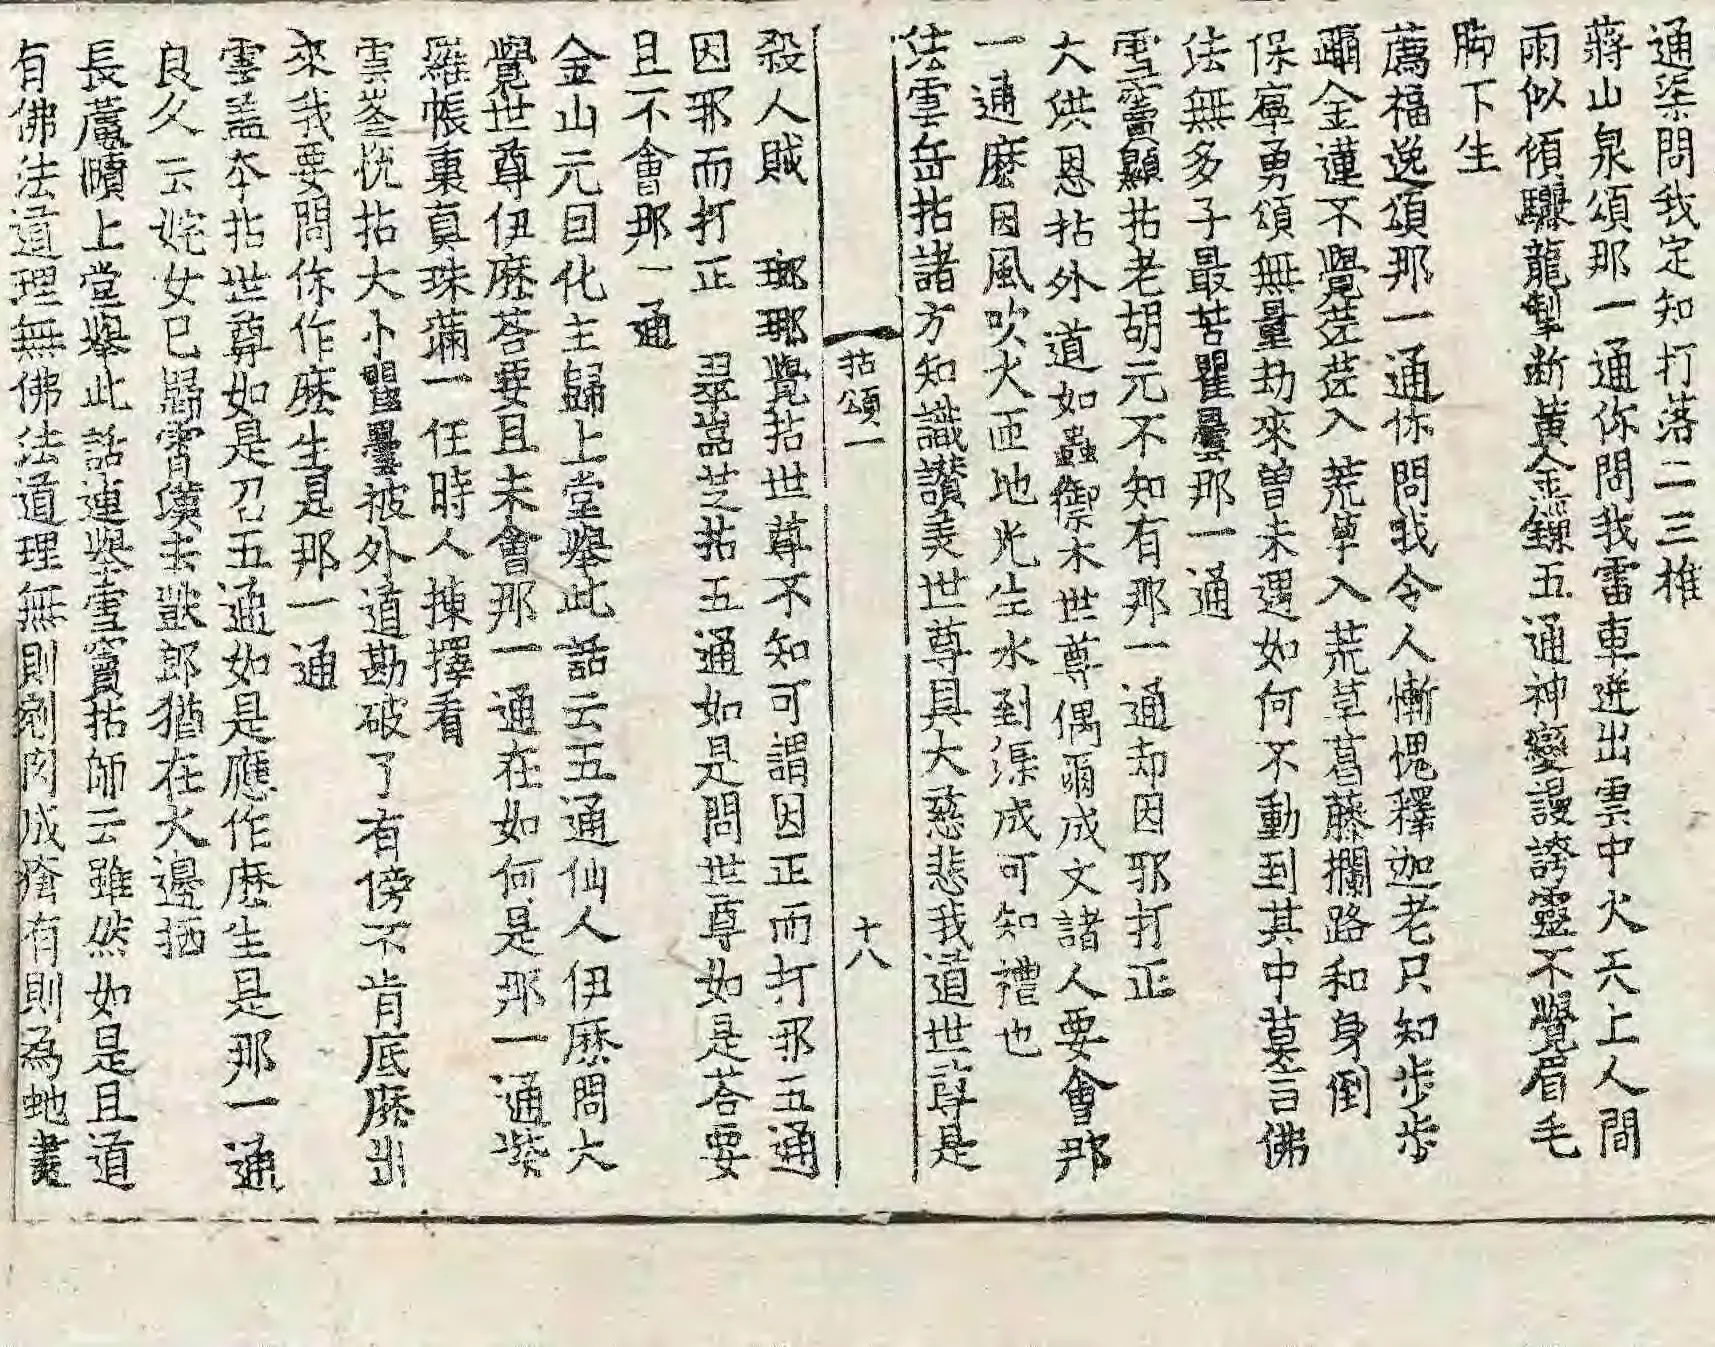 通渠問我定知打落二三椎
蔣山泉頌那一通你問我雷車迸出雲中火天上人間
雨似傾驪龍掣斷黃金鏁五通神變謾誇靈不覺眉毛
脚下生
薦福逸頌那一通你問我令人慚愧釋迦老只知步步
躡金蓮不覺茫茫入荒草入荒草葛藤攔路和身倒
保寧勇頌無量劫來曾未遇如何不動到其中莫言佛
法無多子最苦瞿曇那一通
雪竇顯拈老胡元不知有那一通却因邪打正
大洪恩拈外道如蟲禦木世尊偶爾成文諸人要會那
一通麽因風吹火匝地光生水到渠成可知禮也
法雲岳拈諸方知識讃美世尊具大慈悲我道世尊是
拈頌一
十八
殺人賊　瑯琊覺拈世尊不知可謂因正而打邪五通
因邪而打正　翠嵓芝拈五通如是問世尊如是荅要
且不會那一通
金山元回化主歸上堂擧此話云五通仙人伊麽問大
覺世尊伊麽荅要且未會那一通在如何是那一通紫
羅帳裏真珠滿一任時人揀擇看
雲峯悅拈大小瞿曇被外道勘破了有傍不肯底麽出
來我要問你作麽生是那一通
雲盖本拈世尊如是召五通如是應作麽生是那一通
良久云姹女已歸霄漢去獃郎猶在火邊栖
長蘆賾上堂擧此話連擧雪竇拈師云雖然如是且道
有佛法道理無佛法道理無則剜肉成瘡有則為虵畫